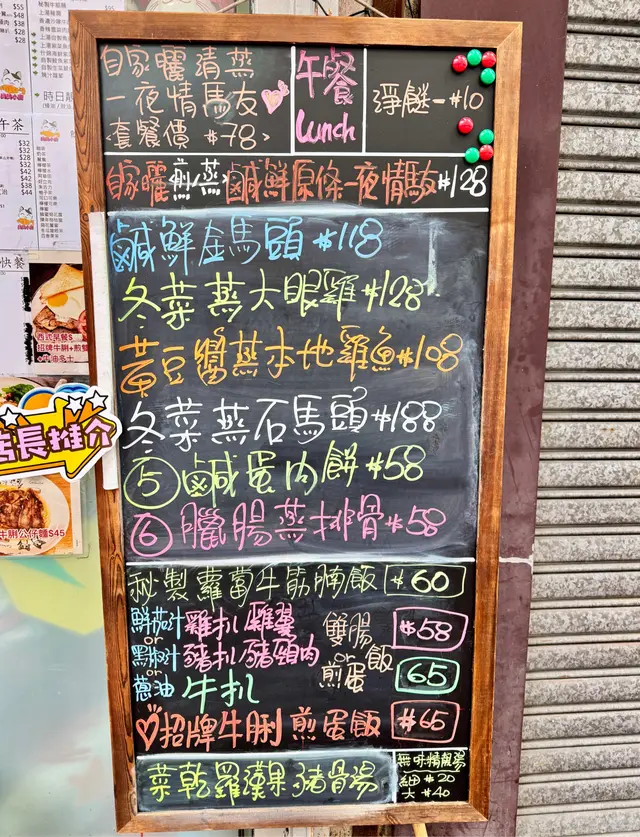 自家曬清蒸
一夜情馬友
<套餐價 $78>
午餐
Lunch
淨餸-$10
自家曬煎/蒸鹹鮮原條一夜情馬友$128
鹹鮮金馬頭$118
冬菜蒸大眼雞$128
黃豆醬蒸本地雞魚$108
冬菜蒸石馬頭$188
⑤鹹蛋肉餅$58
⑥臘腸蒸排骨$58
秘製蘿蔔牛筋腩飯 $60
鮮茄汁 雞扒/雞翼 雙腸 $58
or
黑椒汁 豬扒/豬頸肉 or 飯
or
蔥油 牛扒 煎蛋 65
招牌牛脷煎蛋飯 $65
菜乾羅漢果豬骨湯
無味精靚湯
細$20
大$40
店長推介
午茶
快餐
西式早餐$
招牌牛脷+煎雙
+牛油多士
牛脷公仔麵$45